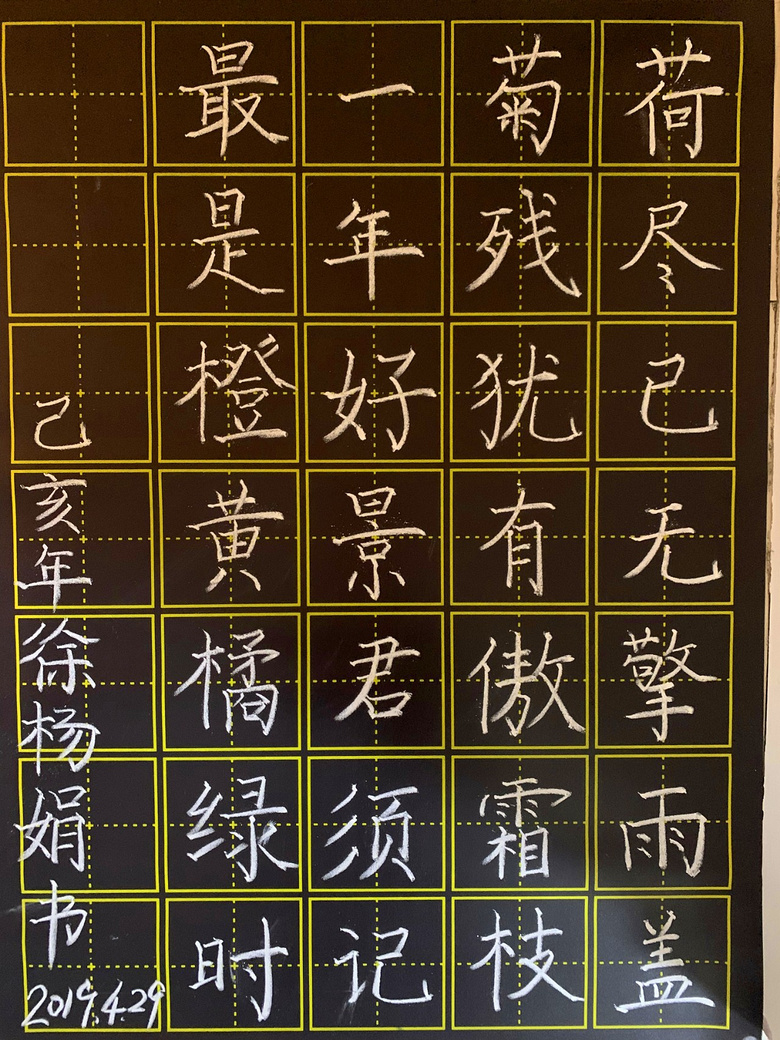 荷尽已无擎雨盖
菊残犹有傲霜枝
一年好景君须记
最是橙黄橘绿时
己亥年徐杨娟书
2019.4.29